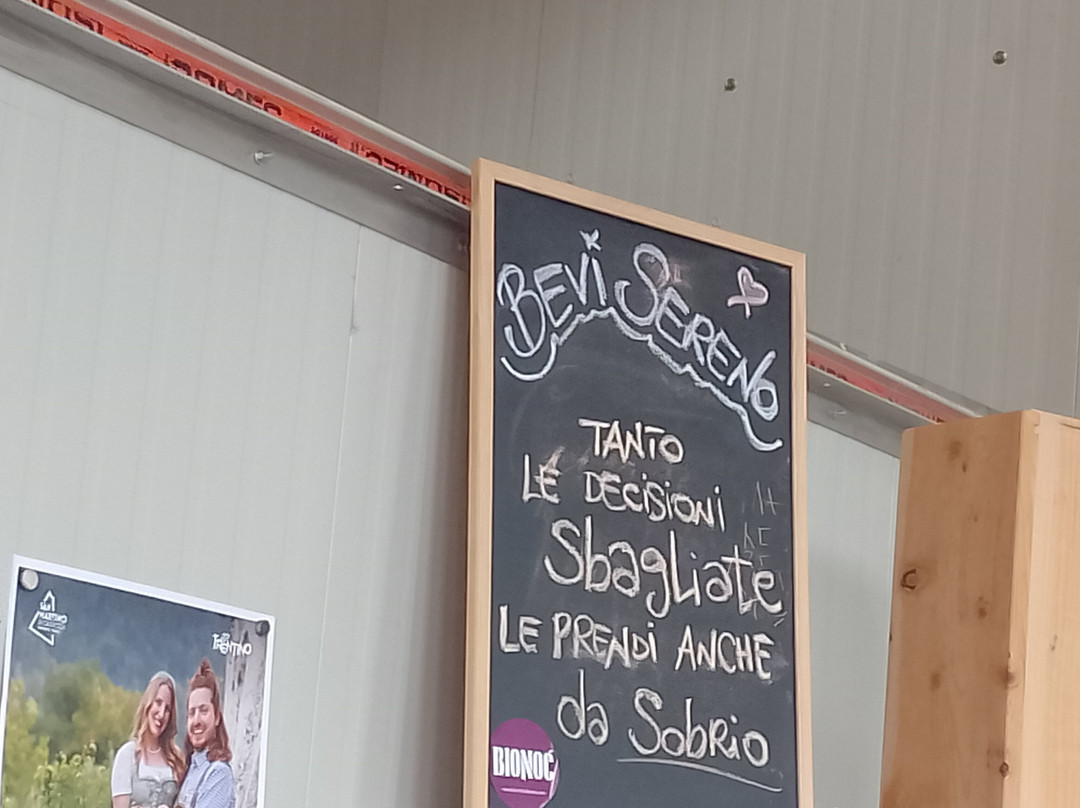 BEVI SERENO
TANTO
LE DECISIONI
SbagLiate
LE PRENDi ANCHE
da SobRio
BIONOC'
SAN
MARTINO
TRENTINO